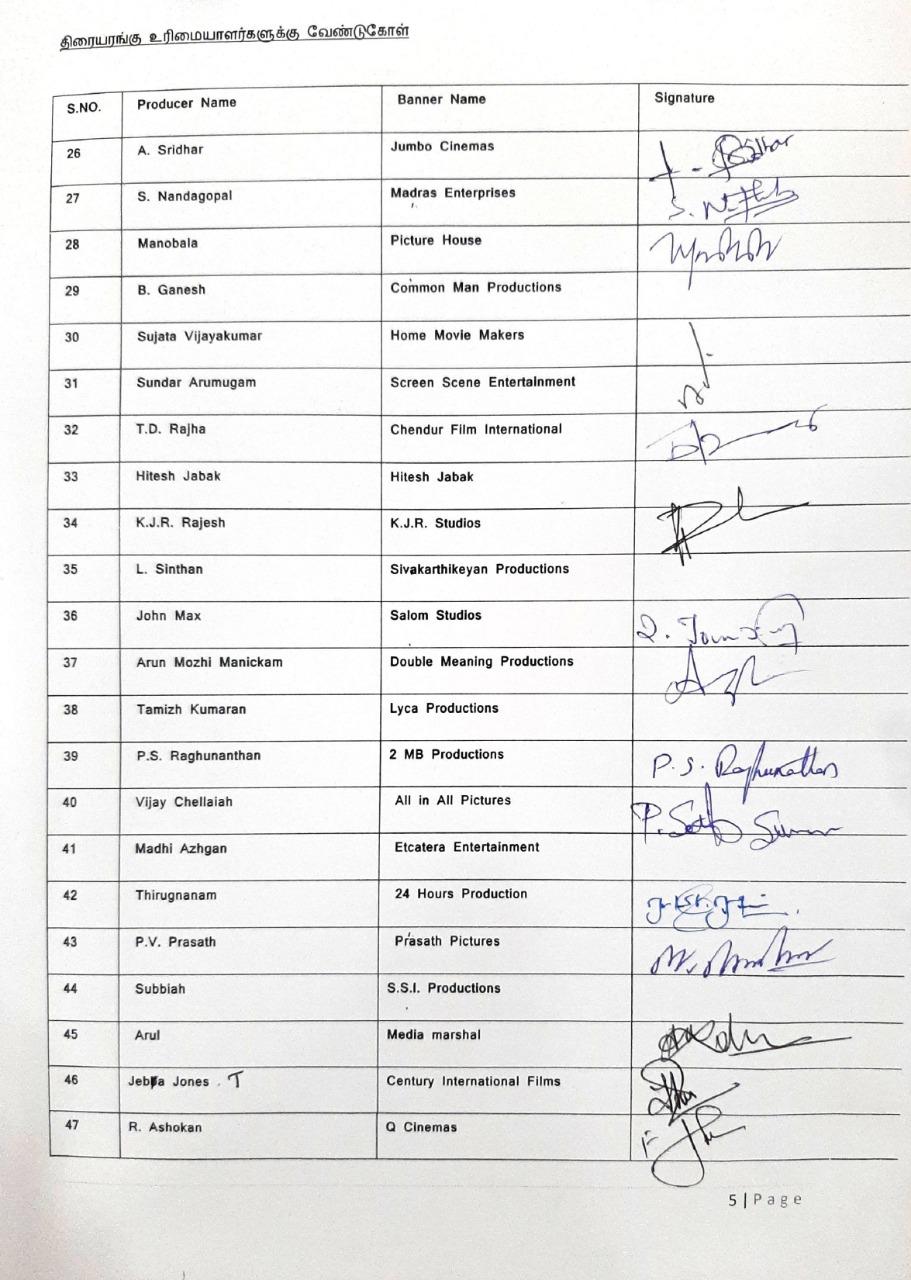 திரையரங்கு உரிமையாளர்களுக்கு வேண்டுகோள்
S.NO. Producer Name Banner Name Signature
26 A. Sridhar Jumbo Cinemas
27 S. Nandagopal Madras Enterprises
28 Manobala Picture House
29 B. Ganesh Common Man Productions
30 Sujata Vijayakumar Home Movie Makers
31 Sundar Arumugam Screen Scene Entertainment
32 T.D. Rajha Chendur Film International
33 Hitesh Jabak Hitesh Jabak
34 K.J.R. Rajesh K.J.R. Studios
35 L. Sinthan Sivakarthikeyan Productions
36 John Max Salom Studios
37 Arun Mozhi Manickam Double Meaning Productions
38 Tamizh Kumaran Lyca Productions
39 P.S. Raghunanthan 2 MB Productions P.S. Raghunathan
40 Vijay Chellaiah All in All Pictures
41 Madhi Azhgan Etcatera Entertainment
42 Thirugnanam 24 Hours Production
43 P.V. Prasath Prasath Pictures
44 Subbiah S.S.I. Productions
45 Arul Media marshal
46 Jones . T Century International Films
47 R. Ashokan Q Cinemas
5 | Page